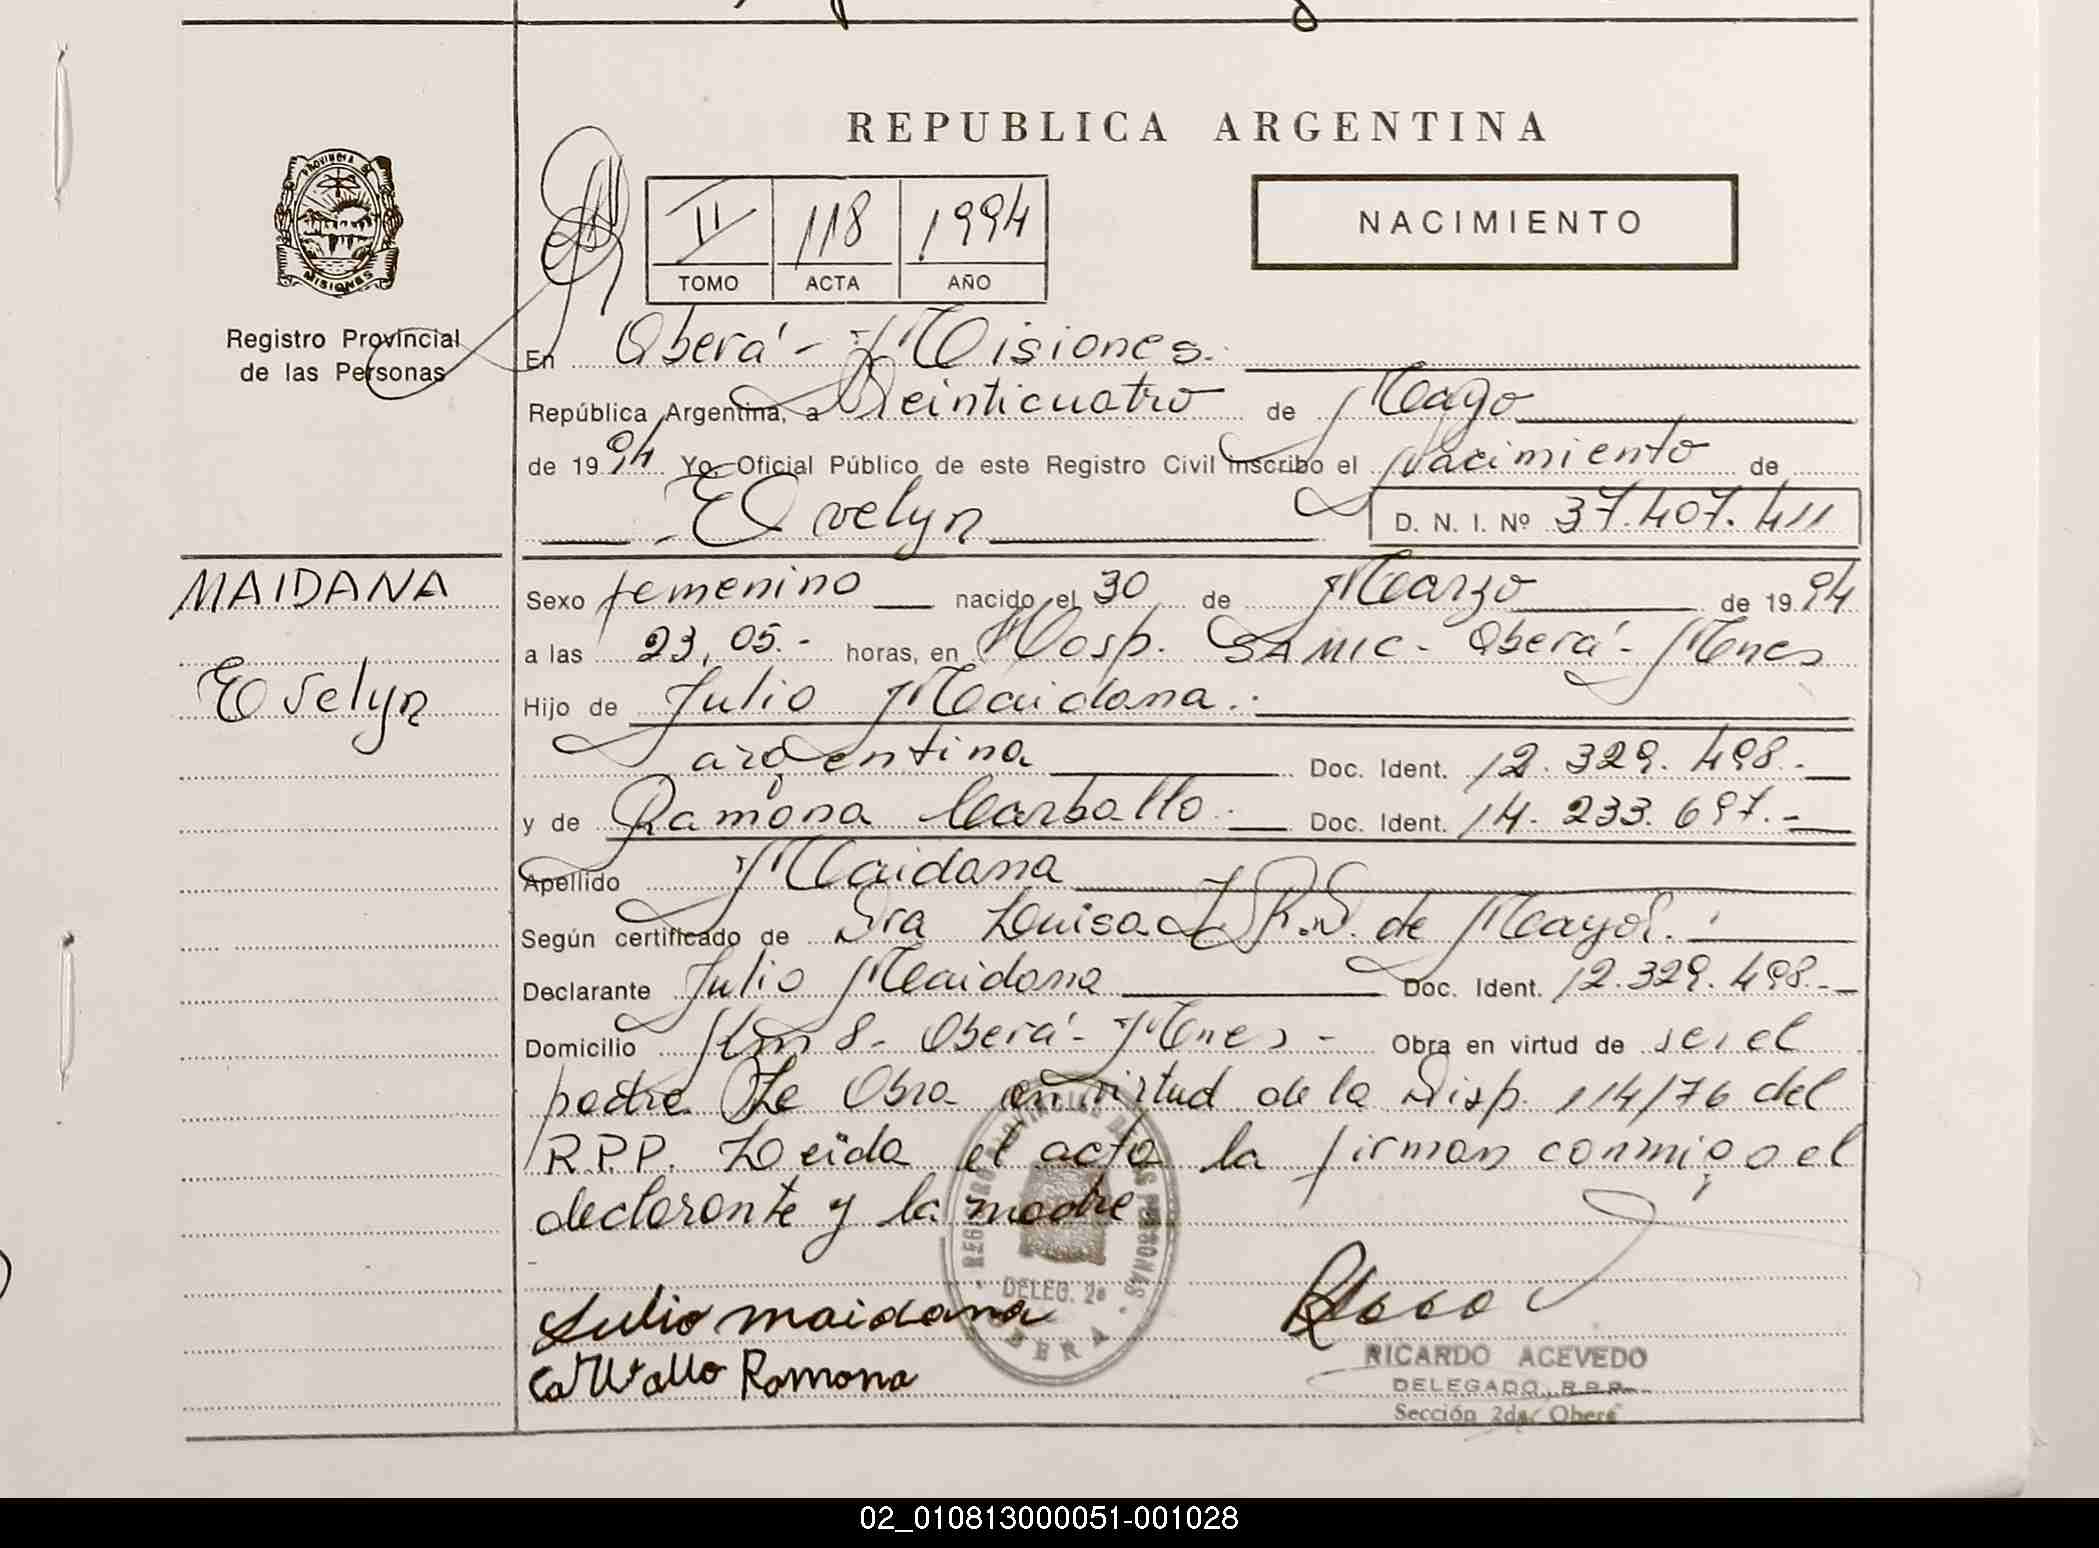 REPUBLICA ARGENTINA
PROVINCIA DE
MISIONES
Registro Provincial
de las Personas
II 118 1994
TOMO ACTA AÑO
NACIMIENTO
En Oberá - Misiones.
República Argentina, a Veinticuatro de Mayo
de 1994 Yo, Oficial Público de este Registro Civil inscribo el Nacimiento de
Evelyn D. N. I. Nº 37.407.411
MAIDANA
Evelyn
Sexo femenino nacido el 30 de Marzo de 1994
a las 23,05.- horas, en Hosp. SAMIC - Oberá - Mnes
Hijo de Julio Maidana.
argentina Doc. Ident. 12.329.498.-
y de Ramona Carballo Doc. Ident. 14.233.697.-
Apellido Maidana
Según certificado de Dra Luisa de Mayol.
Declarante Julio Maidana Doc. Ident. 12.329.498.-
Domicilio Km 8 - Oberá - Mnes - Obra en virtud de ser el
padre Se Obra en virtud de la Disp. 114/76 del
R.P.P. Leida el acta la firman conmigo el
declarante y la madre
REGISTRO PROVINCIAL DE LAS PERSONAS
DELEG. 2ª
OBERA
Julio maidana
Carvallo Ramona
RICARDO ACEVEDO
DELEGADO R.P.P.
Sección 2da. Oberá
02_010813000051-001028